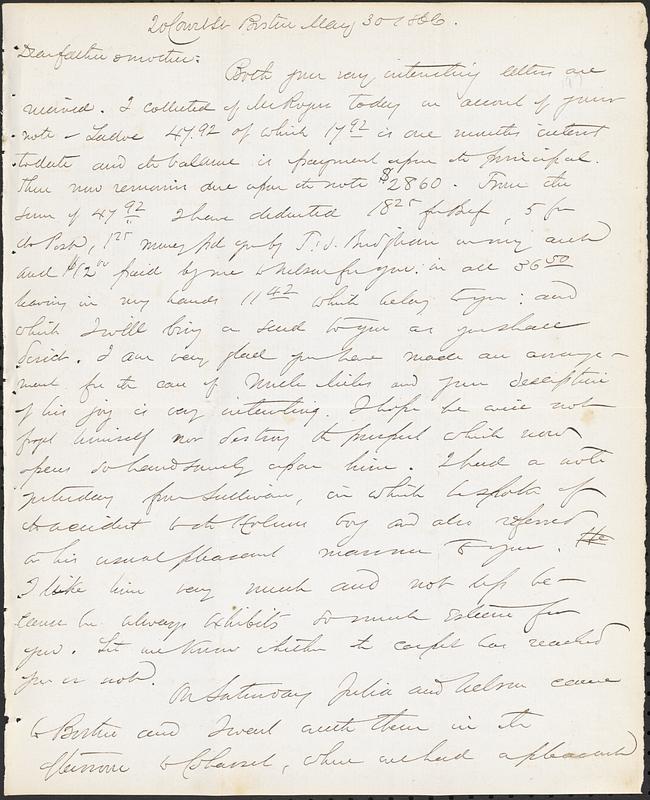 20 Court St Boston May 30 1866.
Dear father & mother:
Both your very interesting letters are
received. I collected of Mr Rogers today on account of your
note - 47.92 of which 17 92 is one months interest
to date and the balance is payment upon the principal.
There now remains due upon the note $2860. From the
sum of 47 92 I have deducted 18 25 for Beef, 5 for
do Pork, 1 25 money pd you by T. S. Bridgham on my acct
and $12 00 paid by me to Nelson for you: in all 36 50
leaving in my hands 11 42 which belong to you: and
which I will bring or send to you as you shall
decide. I am very glad you have made an arrange-
ment for the care of Uncle and your description
of his joy is very interesting. I hope he will not
forget himself nor destroy the prospect which now
opens so handsomely upon him. I had a note
yesterday from Sullivan, in which he spoke of
the accident to the Holmes boy and also referred
in his usual pleasant manner to you. He
I like him very much and not less be-
cause he always exhibits so much esteem for
you. Let me know whether the carpet has reached
you or not.
On Saturday Julia and Nelson came
to Boston and I went with them in the
afternoon to Cohasset, where we had a pleasant